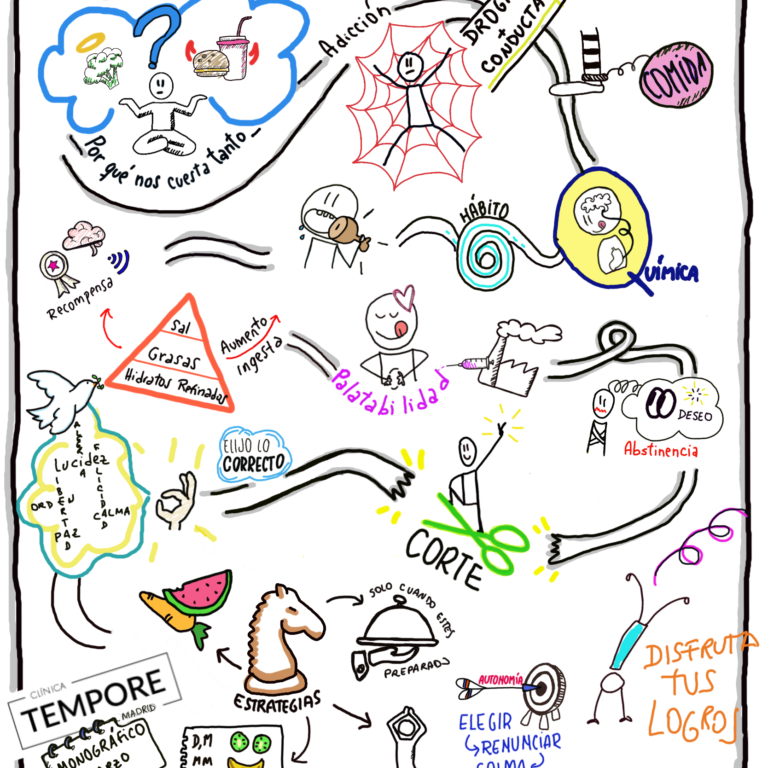 Por qué nos cuesta tanto_
Adicción
+
CONDUCTA
COMIDA
HÁBITO
QUÍMICA
Recompensa
Sal
Grasas
Hidratos Refinados
Aumento
ingesta
Palatabilidad
DESEO
Abstinencia
ELIJO LO
CORRECTO
ALEGRÍA
FELICIDAD
Lucidez
LIBERTAD
ORDEN
CALMA
PAZ
CORTE
SOLO CUANDO ESTÉS
PREPARADO
ESTRATEGIAS
AUTONOMÍA
ELEGIR
RENUNCIAR
DISFRUTA
TUS
LOGROS
CLÍNICA
TEMPORE
MADRID
MONOGRÁFICO
D,M
MM